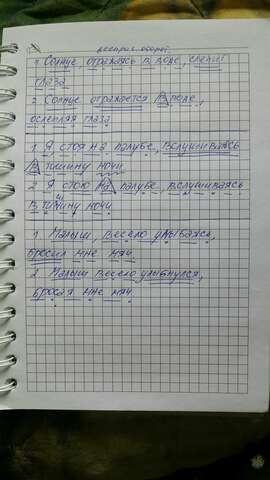 дееприч. оборот.
1 Солнце отражаясь в воде, слепит
глаза
2 Солнце отражается в воде,
ослепляя глаза
1 Я стоя на палубе, вслушиваясь
в тишину ночи
2 Я стою на палубе, вслушиваясь
в тишину ночи
1 Малыш, весело улыбаясь,
бросил мне мяч.
2 Малыш весело улыбнулся,
бросая мне мяч.